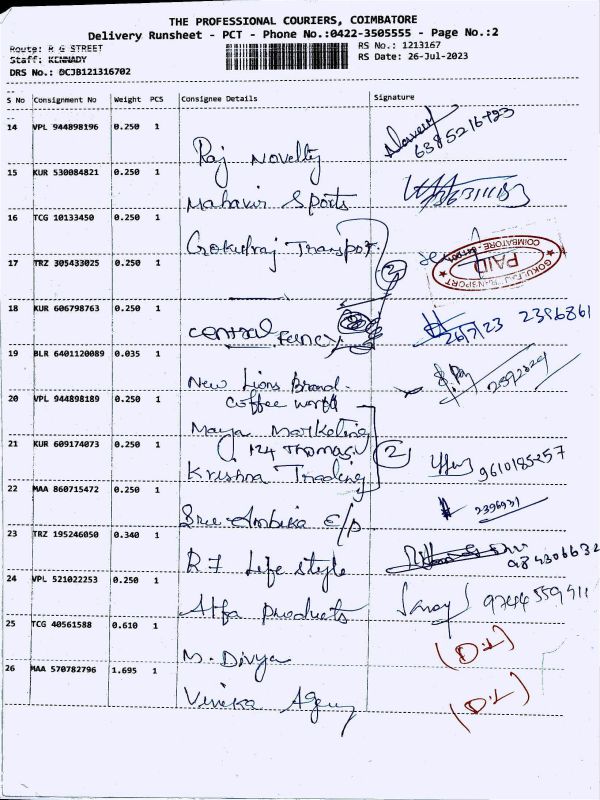 THE PROFESSIONAL COURIERS, COIMBATORE
Delivery Runsheet - PCT - Phone No.:0422-3505555 - Page No.:2
Route: R G STREET
RS No.: 1213167
Staff: KENNADY
RS Date: 26-Jul-2023
DRS No.: OCJB121316702
S No Consignment No Weight PCS Consignee Details Signature
14 VPL 944898196 0.250 1
Raj Novelty
6385216423
15 KUR 530084821 0.250 1
Mahavir Sports
16 TCG 10133450 0.250 1
Gokulraj Transport.
GOKULRAJ TRANSPORT
PAID
COIMBATORE
17 TRZ 305433025 0.250 1
2
18 KUR 606798763 0.250 1
Central Fancy
26/7/23 2396861
19 BLR 6401120089 0.035 1
New Lions Brand
Coffee world
2392829
20 VPL 944898189 0.250 1
Maya Marketing
124 Thomas
21 KUR 609174073 0.250 1
Krishna Trading
2
9610185257
22 MAA 860715472 0.250 1
Sree Ambika E/P
2396931
23 TRZ 195246050 0.340 1
R7 Life style
984306632
24 VPL 521022253 0.250 1
Alfa Products
Sanay
9744559911
25 TCG 40561588 0.610 1
M. Divya
(D.L)
26 MAA 570782796 1.695 1
Viveka Agency
(D.L)